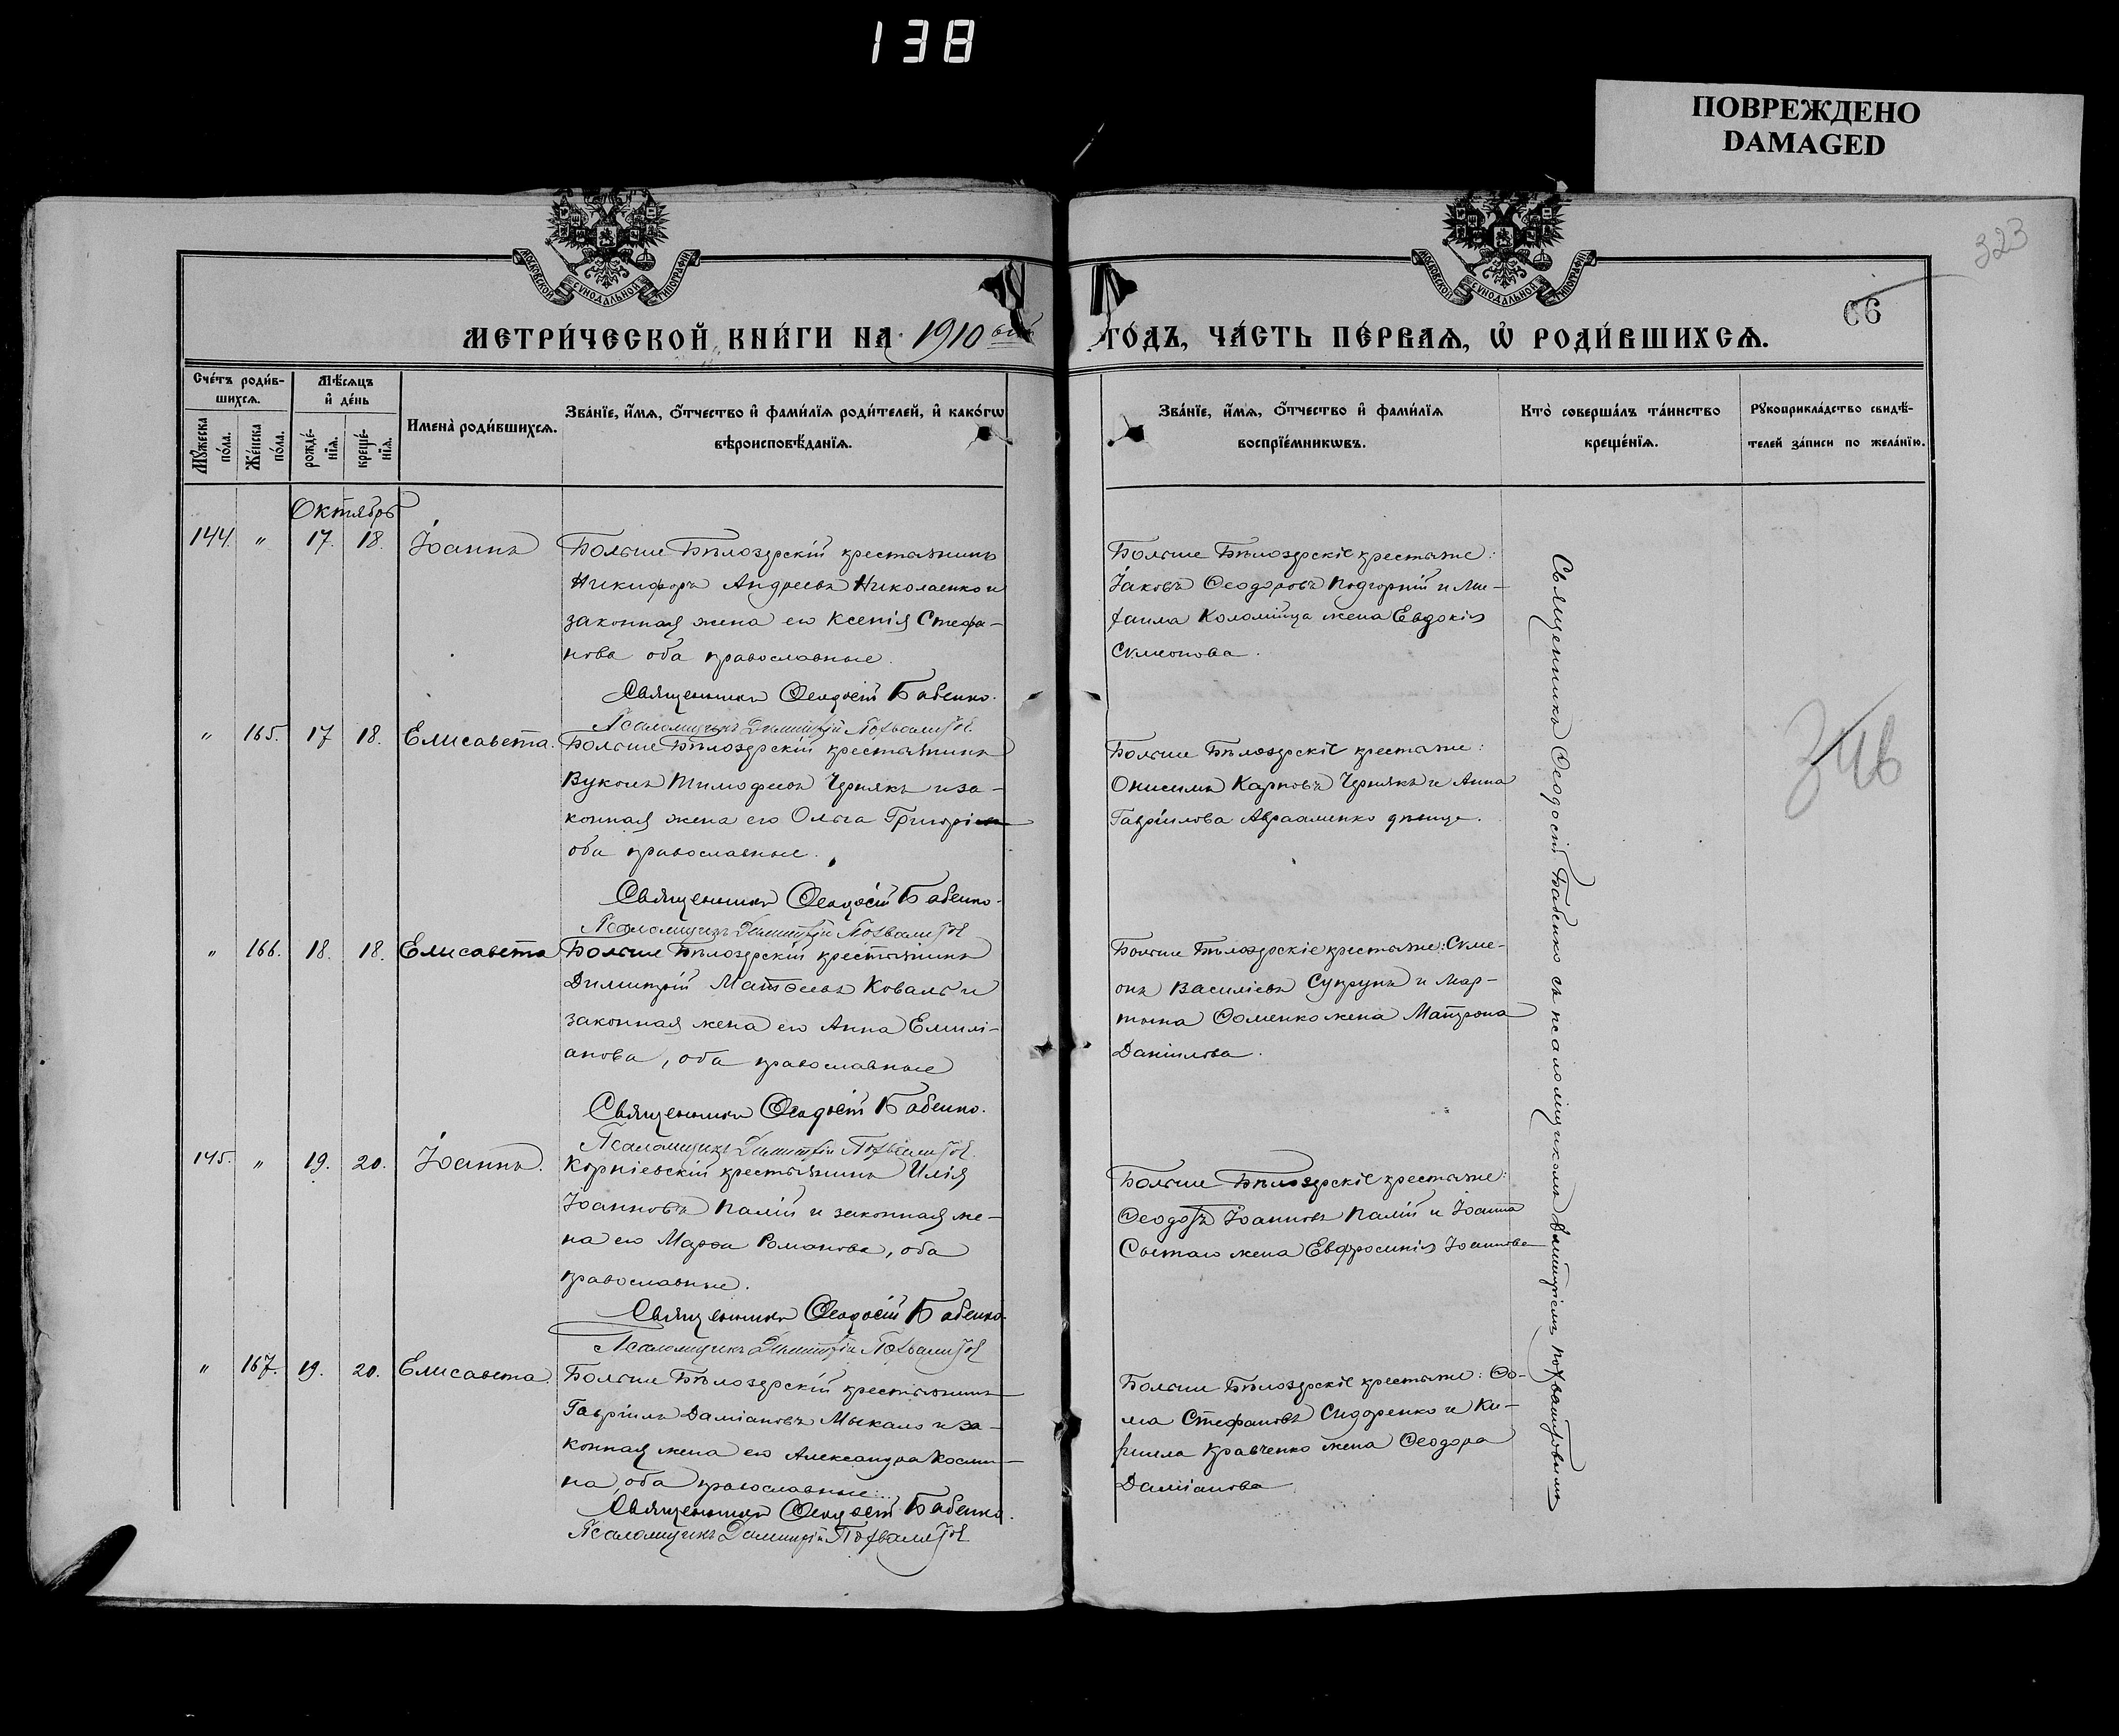 138
ПОВРЕЖДЕНО
DAMAGED
323
66
МОСКОВСКОЙ СУНОДАЛЬНОЙ ТИПОГРАФІИ
МОСКОВСКОЙ СУНОДАЛЬНОЙ ТИПОГРАФІИ
МЕТРИ́ЧЕСКОЙ КНИ́ГИ НА 1910 ГО́ДЪ, ЧА́СТЬ ПЕ́РВАѦ, Ѡ РОДИ́ВШИХСѦ.
Сче́тъ роди́в-
шихсѧ.
Мꙋжеска по́ла.
Же́нска по́ла.
Мѣ́сѧцъ
и҆ де́нь
рожде́-
нїѧ.
креще́-
нїѧ.
Имена̀ роди́вшихсѧ.
Зва́нїе, и҆́мѧ, ѻ҆́тчество и҆ фами́лїѧ роди́телей, и҆ како́гѡ
вѣроисповѣ́данїѧ.
Зва́нїе, и҆́мѧ, ѻ҆́тчество и҆ фами́лїѧ
воспрїе́мникѡвъ.
Кто̀ соверша́лъ та́инство
креще́нїѧ.
Рꙋкоприкла́дство свидѣ́-
телей за́писи по жела́нїю.
Октябрь
144. " 17. 18. Іоаннъ
Больше Бѣлозерскій крестьянинъ
Никифоръ Андреевъ Николаенко и
законная жена его Ксенія Стефа-
нова оба православные.
Священникъ Ѳеодосій Бабенко.
Псаломщикъ Димитрій
Больше Бѣлозерскіе крестьяне:
Іаковъ Ѳеодоровъ Подгорній и Ми-
хаила Коломійца жена Евдокія
Сѵмеонова.
" 165. 17 18. Елисавета.
Больше Бѣлозерскій крестьянинъ
Вуколъ Тимофеевъ Чернякъ и за-
конная жена его Ольга
оба православные.
Священникъ Ѳеодосій Бабенко.
Псаломщикъ Димитрій
Больше Бѣлозерскіе крестьяне:
Онисимъ Карповъ Чернякъ и Анна
Гавріилова Авраменко дѣвица.
346
" 166. 18. 18. Елисавета
Больше Бѣлозерскій крестьянинъ
Димитрій Матѳеевъ Коваль и
законная жена его Анна Емилі-
анова, оба православные
Священникъ Ѳеодосій Бабенко.
Псаломщикъ Димитрій
Больше Бѣлозерскіе крестьяне: Сѵме-
онъ Василіевъ Супрунъ и Мар-
тына Ѳоменко жена Матрона
Даніилова.
145. " 19. 20. Іоаннъ.
Корніевскій крестьянинъ Илія
Іоанновъ Палій и законная же-
на его Марѳа Романова, оба
православные.
Священникъ Ѳеодосій Бабенко.
Псаломщикъ Димитрій
Больше Бѣлозерскіе крестьяне:
Ѳеодотъ Іоанновъ Палій и Іоанна
жена Евфросинія Іоаннова
" 167. 19. 20. Елисавета.
Больше Бѣлозерскій крестьянинъ
Гавріилъ Даміановъ Мыкало и за-
конная жена его Александра Косми-
на, оба православные.
Священникъ Ѳеодосій Бабенко.
Псаломщикъ Димитрій
Больше Бѣлозерскіе крестьяне: Ѳо-
ма Стефановъ Сидоренко и Ки-
рилла Кравченко жена Ѳеодора
Даміанова
Священникъ Ѳеодосій Бабенко съ псаломщикомъ Димитріемъ